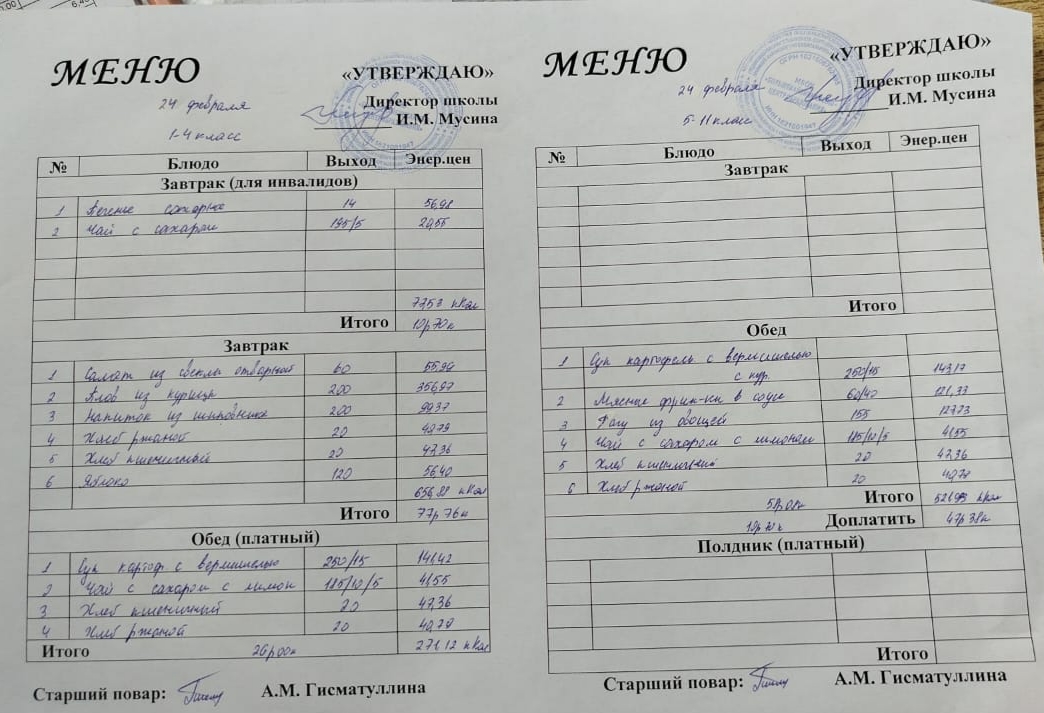 МЕНЮ
«УТВЕРЖДАЮ»
24 февраля
Директор школы
И.М. Мусина
1-4 класс
№ Блюдо Выход Энер.цен
Завтрак (для инвалидов)
1 Печенье сахарное 14 56,98
2 Чай с сахаром 195/5 20,55
77,53 кКал
Итого 10р70к
Завтрак
1 Салат из свеклы отварной 60 55,99
2 Плов из курицы 200 356,97
3 Напиток из шиповника 200 99,37
4 Хлеб ржаной 20 40,79
5 Хлеб пшеничный 20 47,36
6 Яблоко 120 56,40
656,88 кКал
Итого 77р76к
Обед (платный)
1 Суп картоф с вермишелью 250/15 141,42
2 Чай с сахаром с лимон 185/10/5 41,55
3 Хлеб пшеничный 20 47,36
4 Хлеб ржаной 20 40,79
Итого 26р00к 271,12 кКал
Старший повар: А.М. Гисматуллина
МЕНЮ
«УТВЕРЖДАЮ»
24 февраля
Директор школы
И.М. Мусина
5-11 класс
№ Блюдо Выход Энер.цен
Завтрак
Итого
Обед
1 Суп картофель с вермишелью
с кур. 250/15 143,17
2 Мясные фрик-ки в соусе 60/40 121,33
3 Рагу из овощей 155 127,73
4 Чай с сахаром с лимоном 185/10/5 41,55
5 Хлеб пшеничный 20 47,36
6 Хлеб ржаной 20 40,79
58р08к Итого кКал
10р70к Доплатить 47р38к
Полдник (платный)
Итого
Старший повар: А.М. Гисматуллина